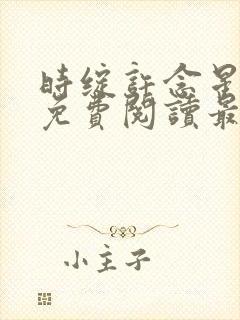 時綻許念星
免費閱讀最
小主子